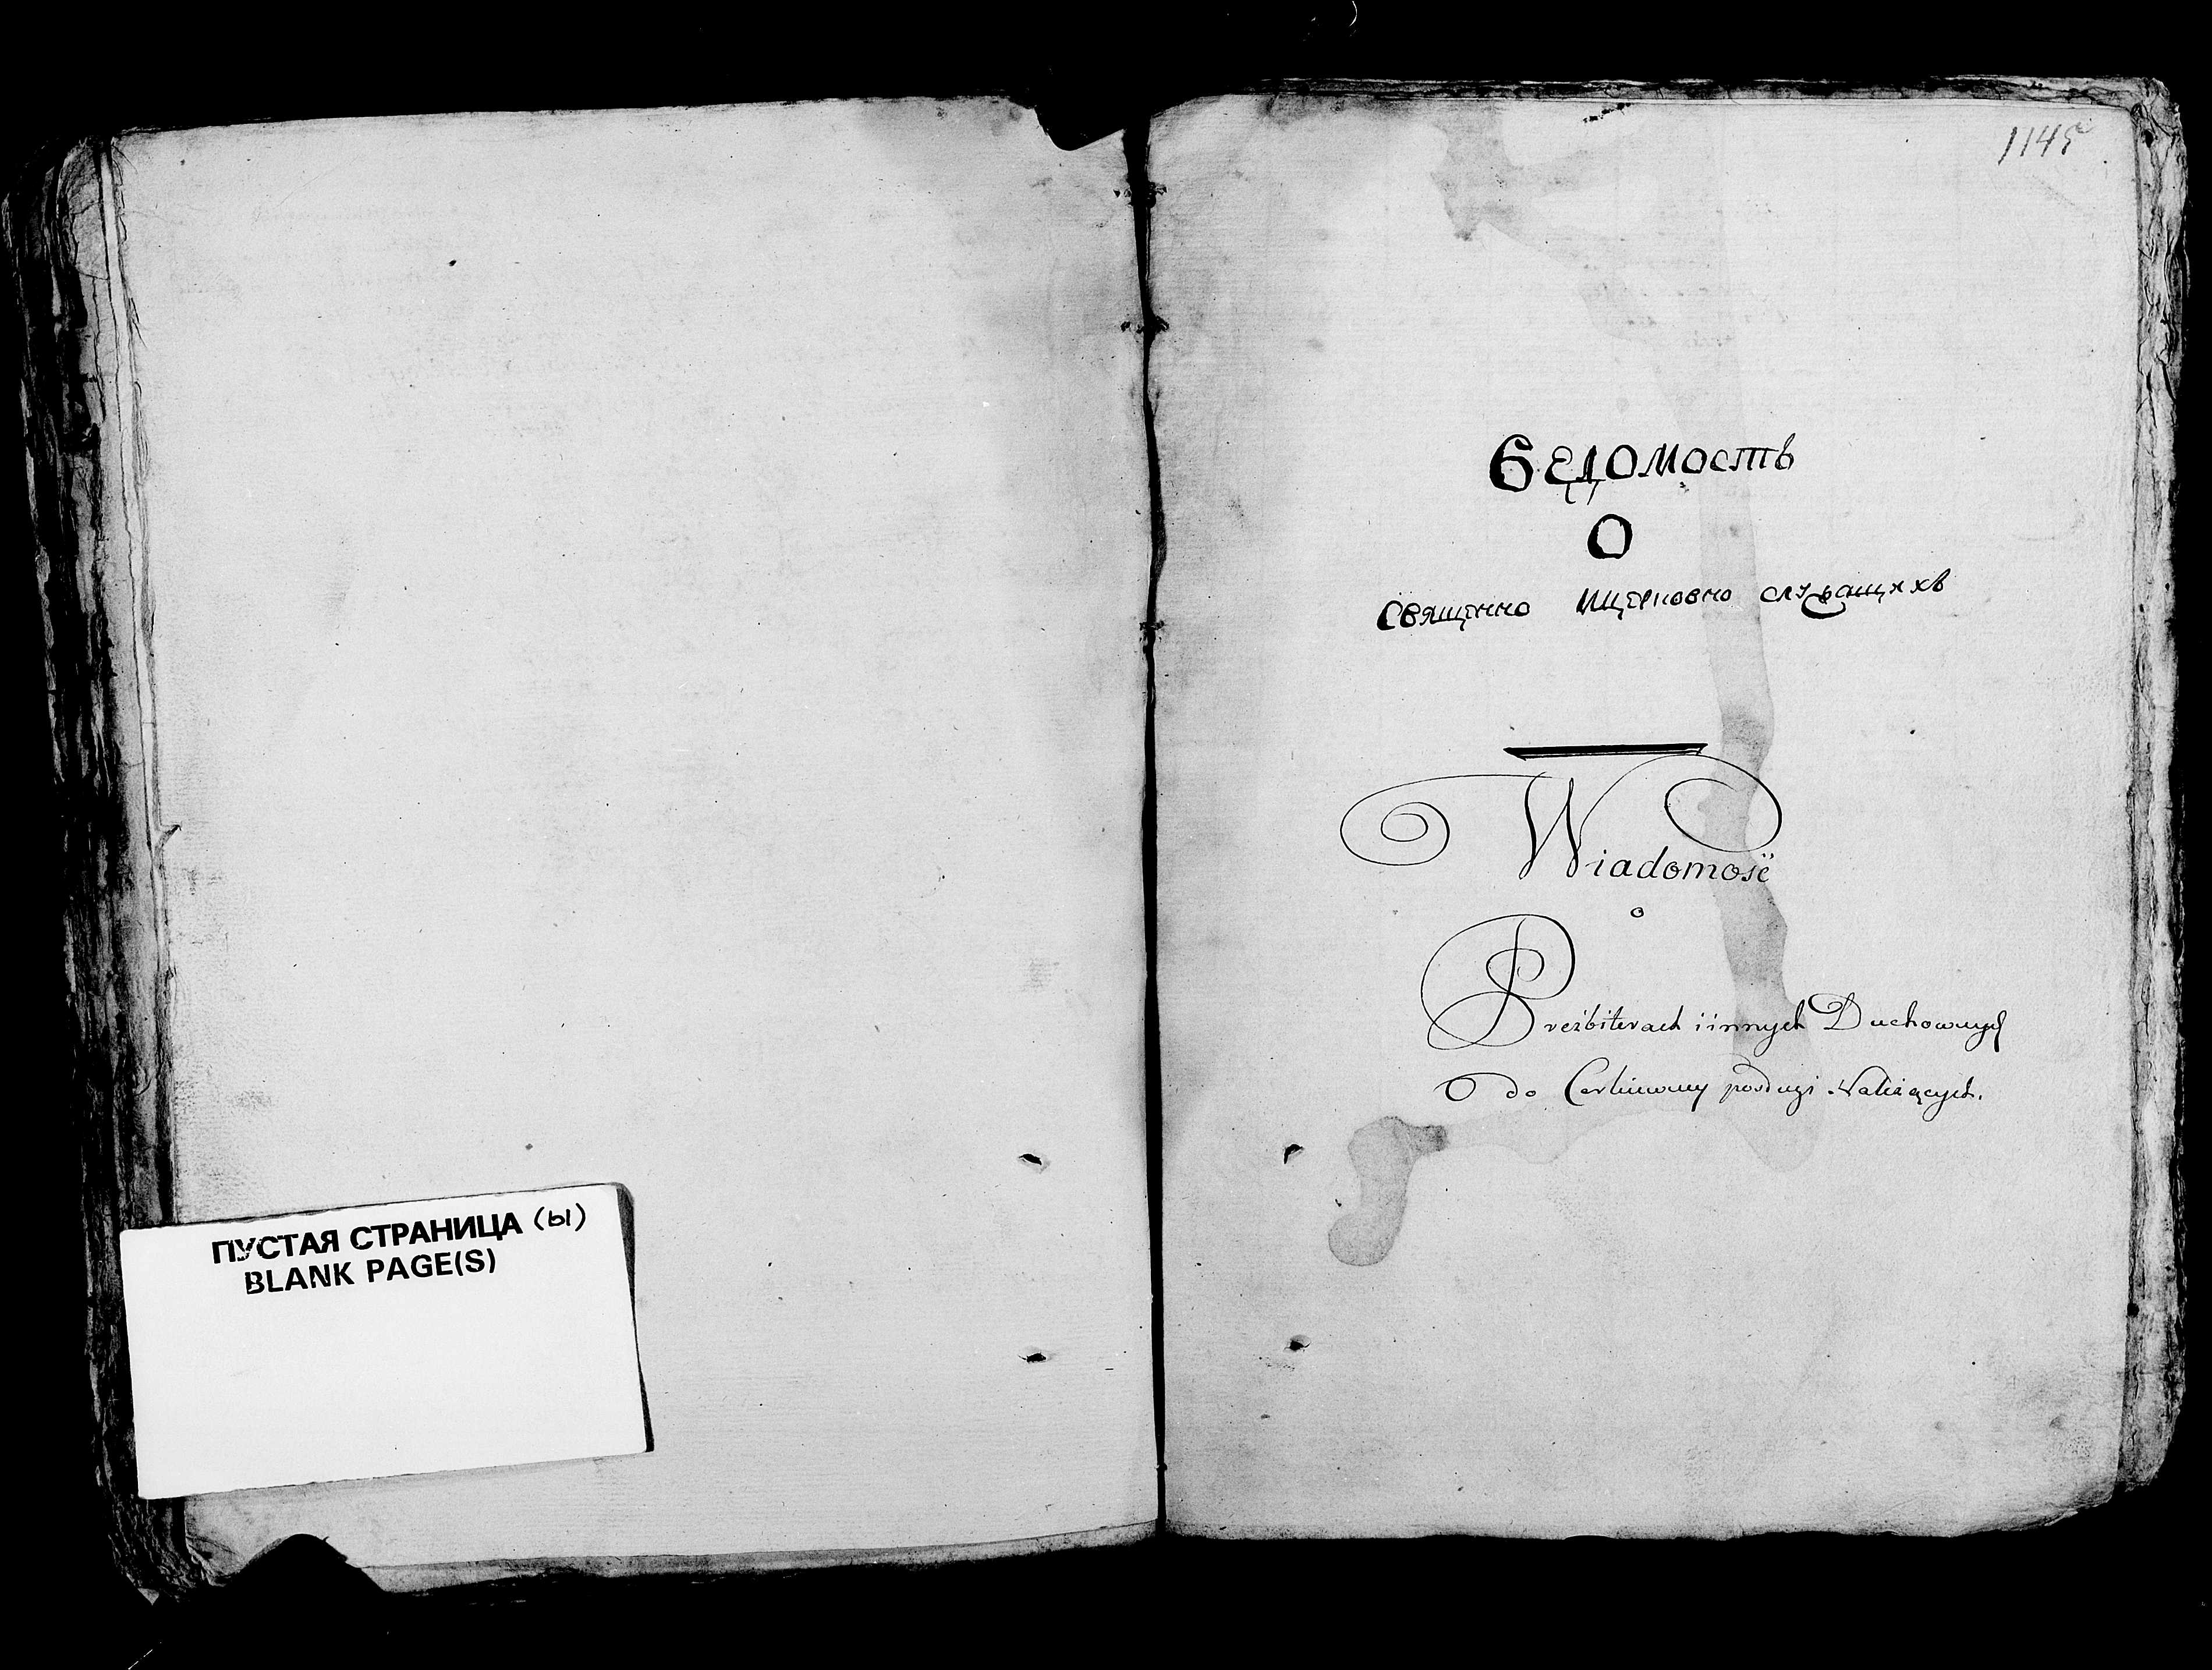 ПУСТАЯ СТРАНИЦА (ы)
BLANK PAGE(S)
1145
Ведомость
О
Священно Ицерковно служащихъ
Wiadomosć
o
Prezbiterach i innych Duchownych
do Cerkiewney posługi Należących.